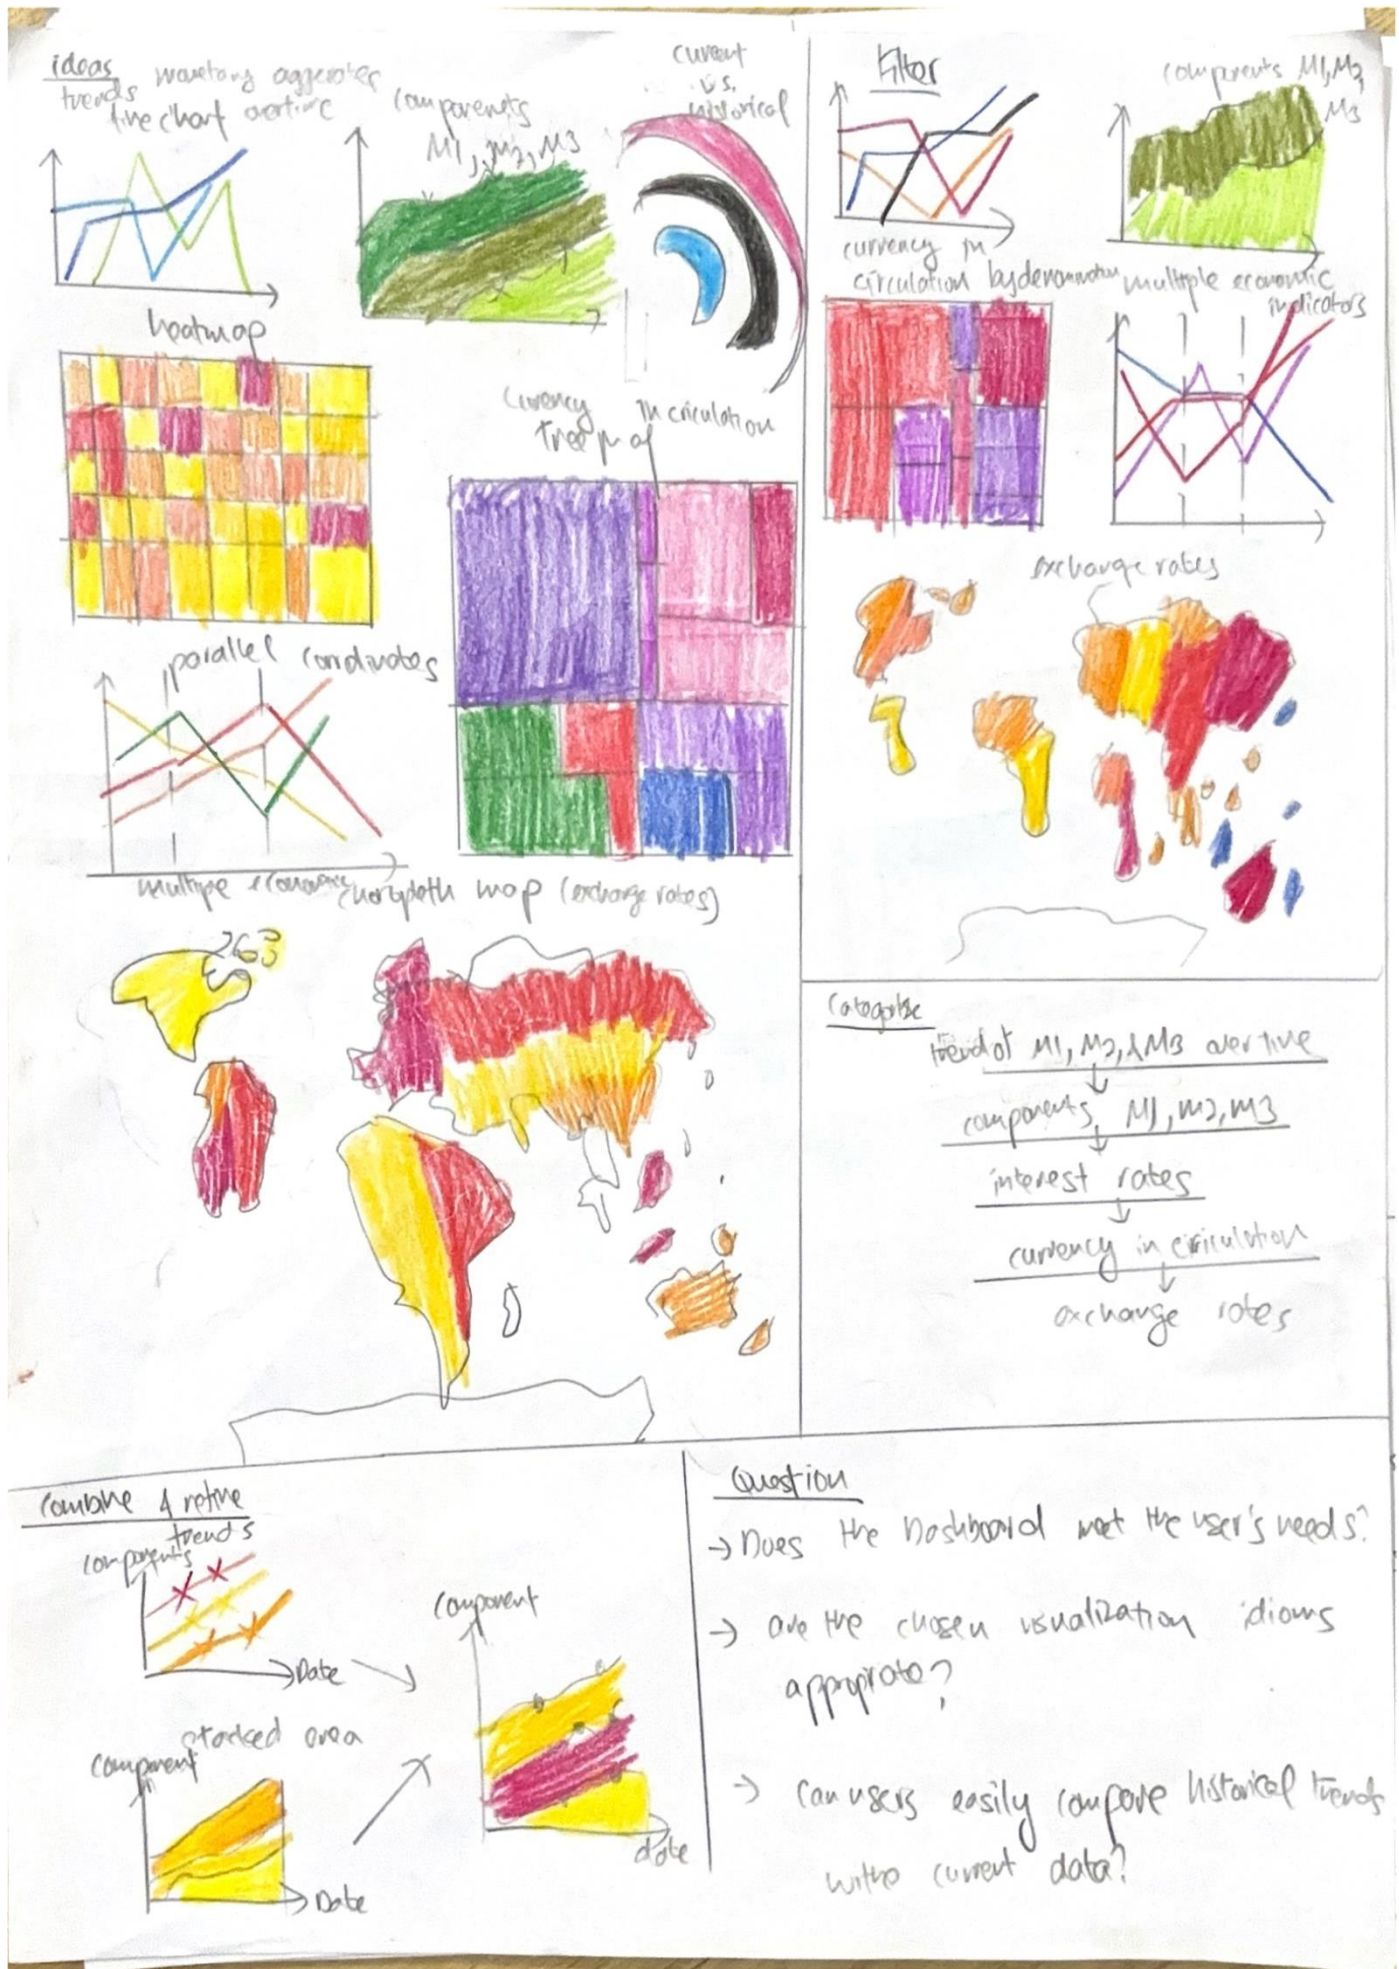 ideas
trends monetary aggerates
line chart overtime
components
M1, M2, M3
current
vs.
historical
heatmap
currency in criculation
treemap
parallel coordinates
multiple economic
choropleth map (exchange rates)
Filter
components M1, M2,
M3
currency in
circulation by denomination
multiple economic
indicators
exchange rates
Categorize
trend of M1, M2, & M3 over time
components, M1, M2, M3
interest rates
currency in circulation
exchange rates
Combine & refine
trends
components
Date
component
date
stacked area
component
Date
Question
→ Does the Dashboard meet the user's needs?
→ are the chosen visualization idioms
appropriate?
→ Can users easily compare historical trends
with current data?